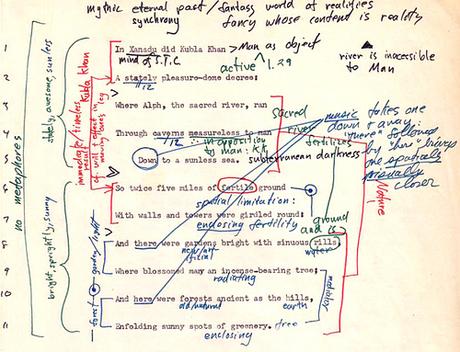 mythic eternal past / fantasy world of realities
synchrony fancy whose content is reality
1 In Xanadu did Kubla Khan > Man as object
mind of S.T.C.
active 1.29
river is inaccessible
to Man
2 A stately pleasure-dome decree:
1.12
3 Where Alph, the sacred river, ran
sacred
river
music takes one
down + away.
4 Through caverns measureless to man
1.12 in opposition
to man: K.K.
fertilizes
"there" followed
by "here" brings
one spatially
visually
closer
5 Down to a sunless sea.
subterranean darkness
6 So twice five miles of fertile ground
spatial limitation:
7 With walls and towers were girdled round:
enclosing fertility
ground
and is
8 And there were gardens bright with sinuous rills,
new/artificial
water
9 Where blossomed many an incense-bearing tree;
radiating
10 And here were forests ancient as the hills,
old/natural
earth
11 Enfolding sunny spots of greenery.
tree
enclosing
no metaphores
stately, awesome, sunless
bright, sprightly, sunny
immediate/timeless
Kubla Khan
garden/light
forest
Nature
radiating